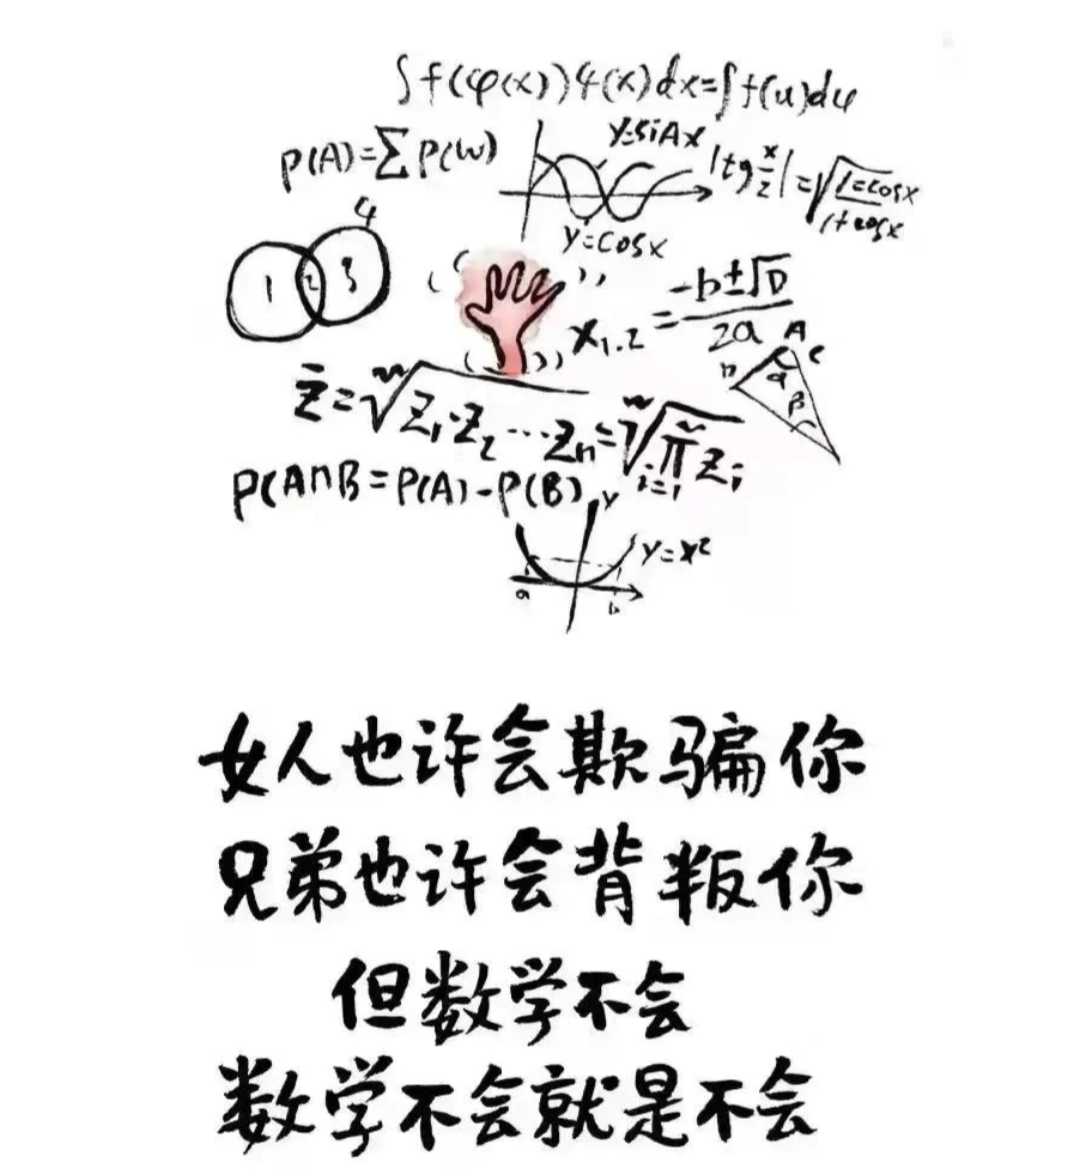 ∫f(φ(x))φ(x)dx=∫f(u)du
P(A)=∑P(W)
y=sinx
|tg x/2|=√1-cosx/1+cosx
4
1 2 3
y=cosx
x1.2=-b±√D/2a
A
C
B
α
β
z̄=ⁿ√z1·z2···zn=ⁿ√∏zi
n
i=1
P(A∩B=P(A)-P(B)
y
y=x²
a
b
女人也许会欺骗你
兄弟也许会背叛你
但数学不会
数学不会就是不会